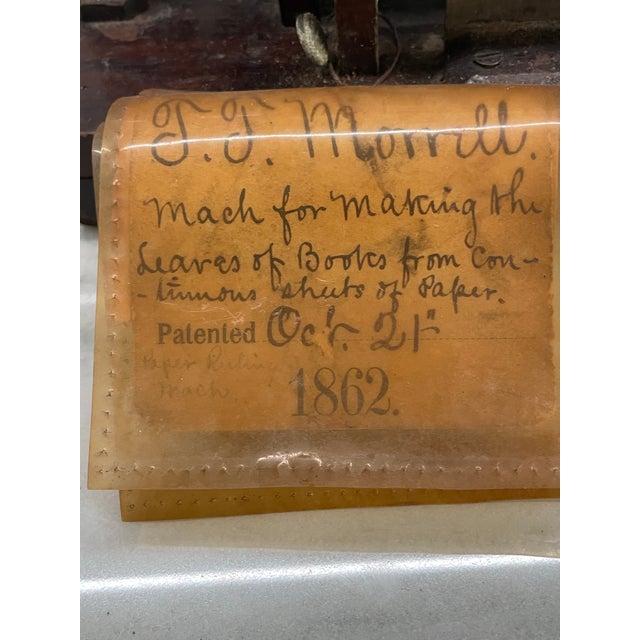 T. T. Morrill.
Mach for Making the
Leaves of Books from Con-
-tinuous sheets of Paper.
Patented Oct. 21st
Paper Ruling
Mach
1862.